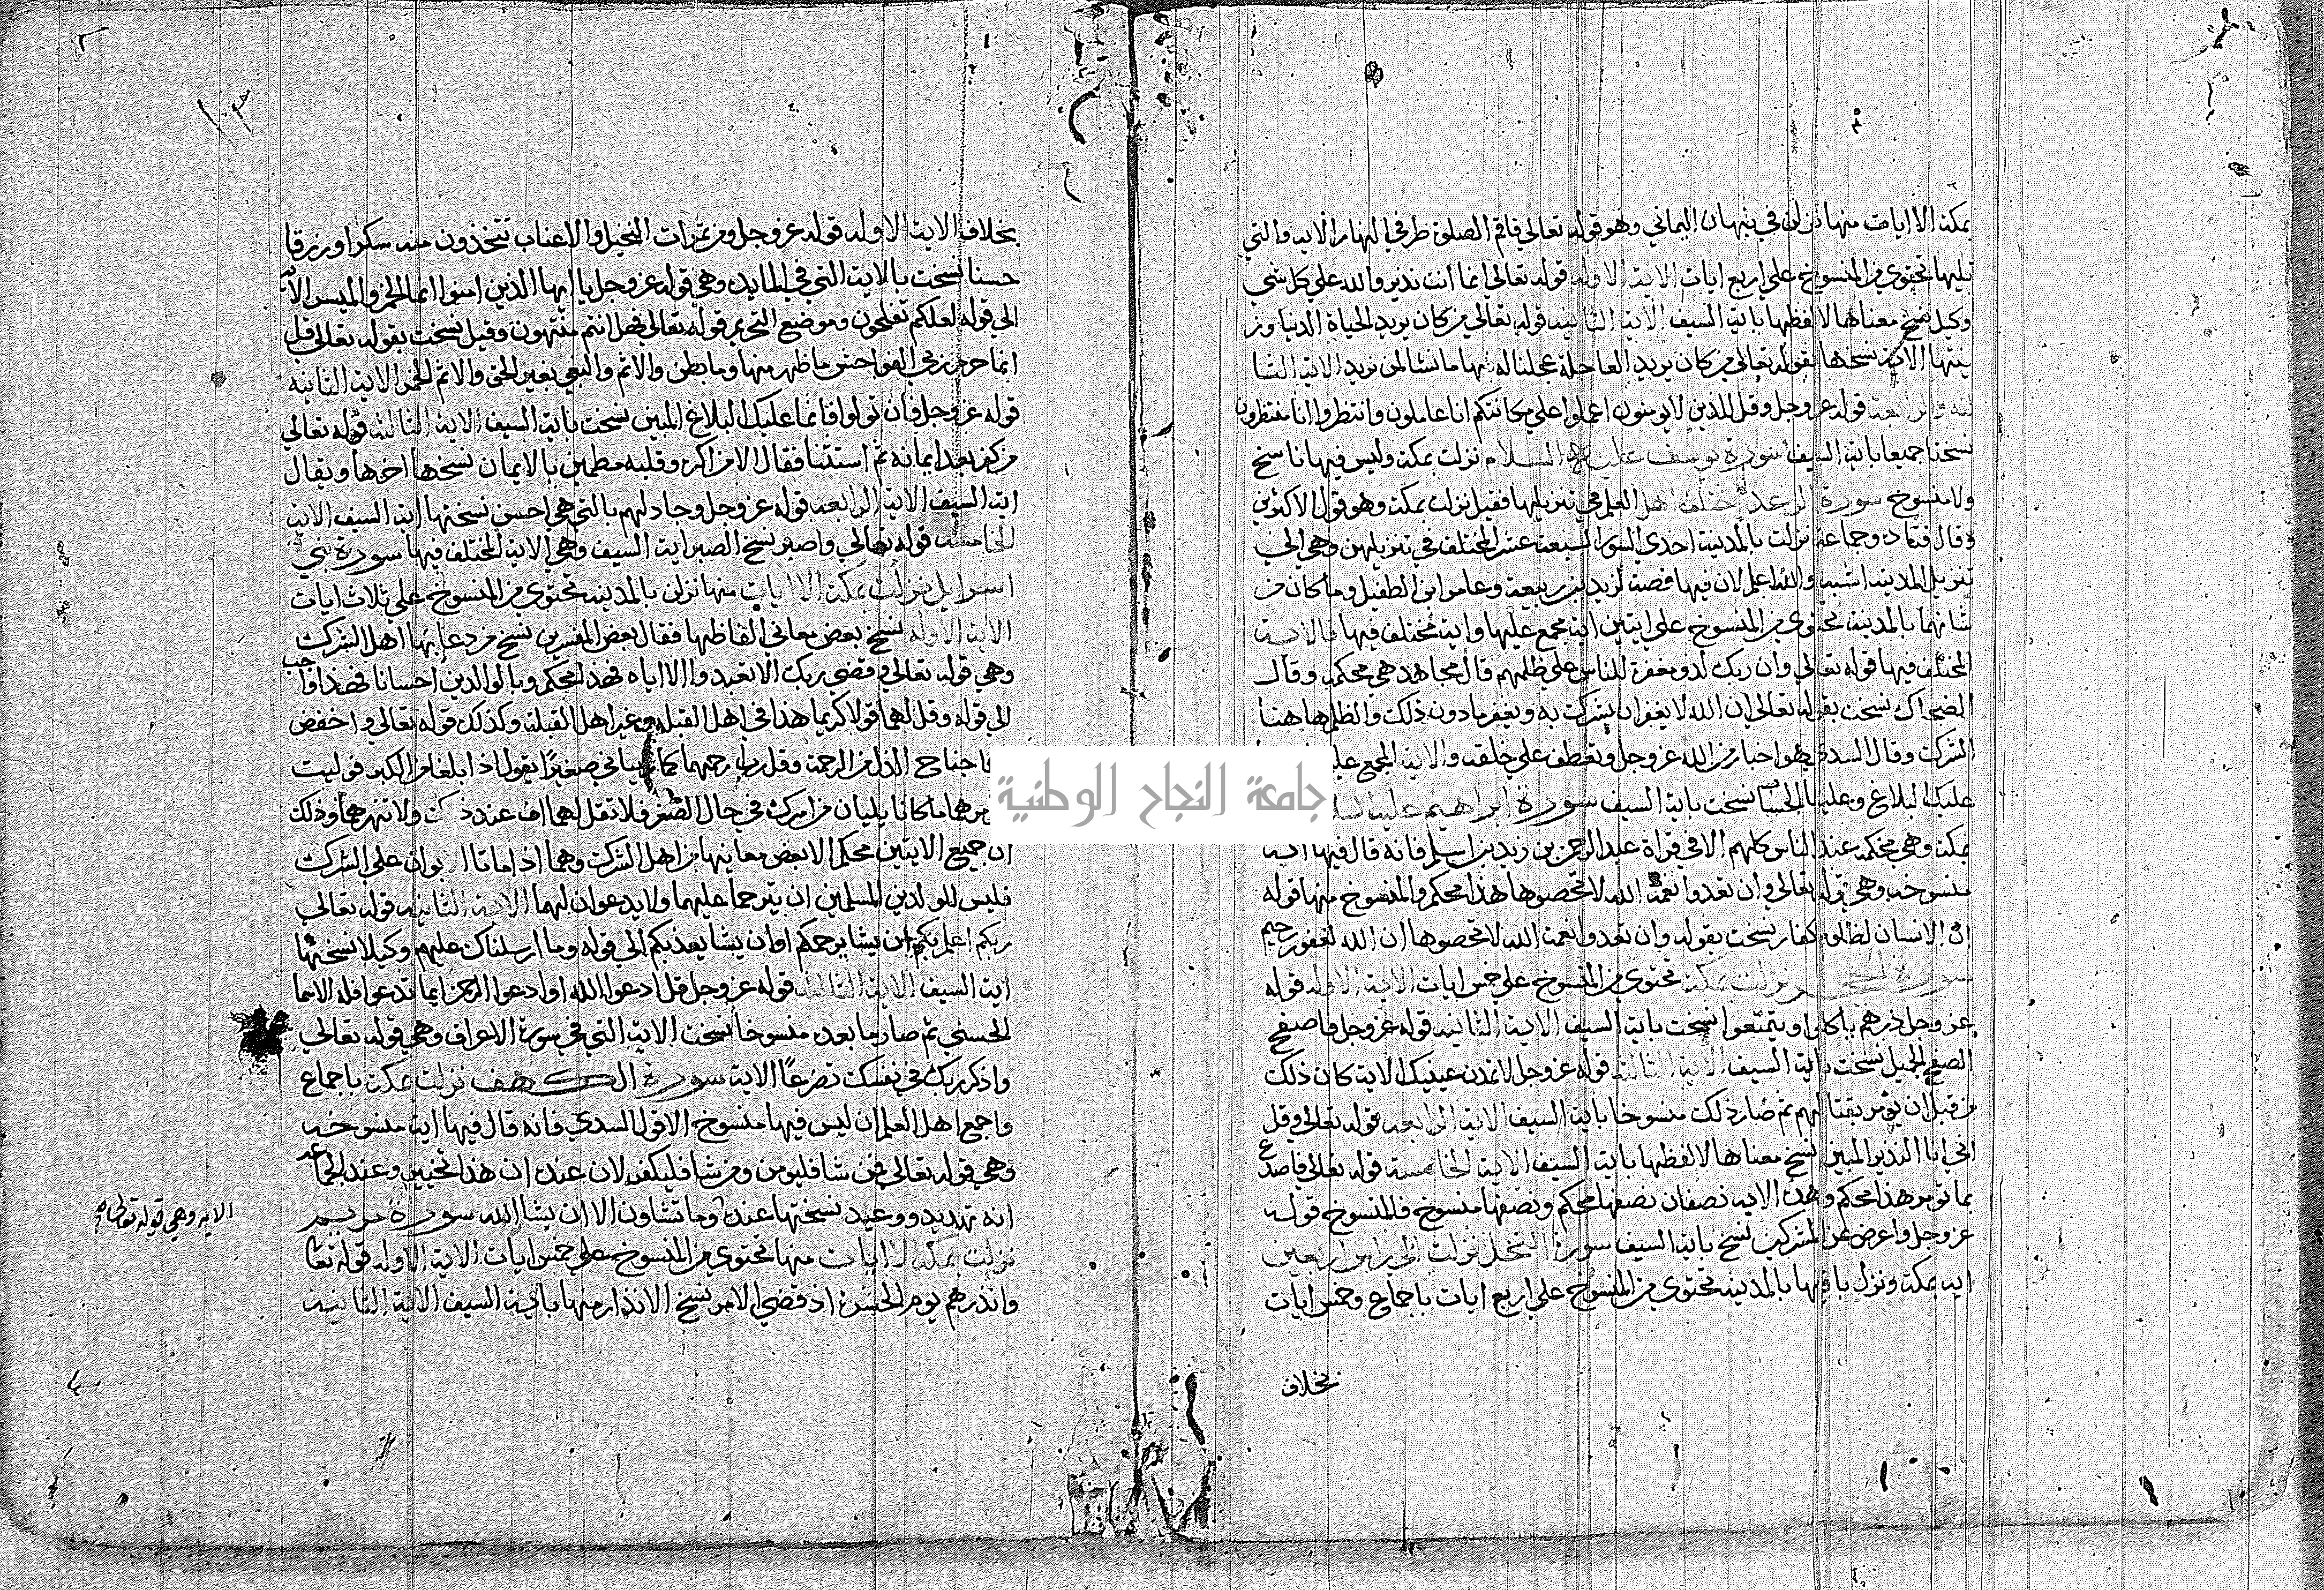 بمكة الا ايات منها نزلن في نبهان اليماني وهو قوله تعالى فاقم الصلوة طرفي النهار الايه والتي
تليها تحتوي من المنسوخ على اربع ايات الاية الاوله قوله تعالى انما انت نذير والله على كل شي
وكيل نسخ معناها لا لفظها باية السيف الاية الثانيه قوله تعالى من كان يريد الحياة الدنيا وز
ينتها الاية نسخها بقوله تعالى من كان يريد العاجلة عجلنا له فيها ما نشا لمن نريد الاية الثا
لثه والرابعة قوله عز وجل وقل للذين لا يومنون اعملوا على مكانتكم انا عاملون وانتظروا انا منتظرون
نسختا جميعا باية السيف سورة يوسف عليه السلام نزلت بمكة وليس فيها ناسخ
ولا منسوخ سورة الرعد اختلف اهل العلم في تنزيلها فقيل نزلت بمكة وهو قول الاكثرين
وقال قتاده وجماعة نزلت بالمدينة احدى السور السبعة عشر المختلف في تنزيلهن وهي الى
تنزيل المدينه اشبه والله اعلم لان فيها قصة لزيد بن ربيعة وعامر ابن الطفيل وما كان من
شانهما بالمدينة تحتوي من المنسوخ على ايتين اية مجمع عليها واية مختلف فيها فالاية
المختلف فيها قوله تعالى وان ربك لذو مغفرة للناس على ظلمهم قال مجاهد هي محكمه وقال
الضحاك نسخت بقوله تعالى ان الله لا يغفر ان يشرك به ويغفر ما دون ذلك والظلم هاهنا
الشرك وقال السدي هو اخبار من الله عز وجل وتعطف على خلقه والاية المجمع عليها
عليك البلاغ وعلينا الحساب نسخت باية السيف سورة ابراهيم عليه
بمكة وهي محكمه عند الناس كلهم الا في قراة عبد الرحمن بن زيد بن اسلم فانه قال فيها اية
منسوخه وهي قوله تعالى وان تعدوا نعمة الله لا تحصوها هذا محكم والمنسوخ منها قوله
ان الانسان لظلوم كفار نسخت بقوله وان تعدوا نعمة الله لا تحصوها ان الله لغفور رحيم
سورة الحجر نزلت بمكة تحتوي من المنسوخ على خمس ايات الاية الاوله قوله
عز وجل ذرهم ياكلوا ويتمتعوا نسخت باية السيف الاية الثانيه قوله عز وجل فاصفح
الصفح الجميل نسخت باية السيف الاية الثالثه قوله عز وجل لا تمدن عينيك الاية كان ذلك
من قبل ان يؤمر بقتالهم ثم صار ذلك منسوخا باية السيف الاية الرابعه قوله تعالى وقل
اني انا النذير المبين نسخ معناها لا لفظها باية السيف الاية الخامسة قوله تعالى فاصدع
بما تومر هذا محكم وهذه الايه نصفان نصفها محكم ونصفها منسوخ فالمنسوخ قوله
عز وجل واعرض عن المشركين نسخ باية السيف سورة النحل نزلت الى راس اربعين
ايه بمكة ونزل باقيها بالمدينه تحتوي من المنسوخ على اربع ايات باجماع وخمس ايات
بخلاف
بخلاف الاية الاوله قوله عز وجل ومن ثمرات النخيل والاعناب تتخذون منه سكرا ورزقا
حسنا نسخت بالاية التي في المايده وهي قوله عز وجل يا ايها الذين امنوا انما الخمر والميسر الايه
الى قوله لعلكم تفلحون وموضع التحريم قوله تعالى فهل انتم منتهون وقيل نسخت بقوله تعالى قل
انما حرم ربي الفواحش ما ظهر منها وما بطن والاثم والبغي بغير الحق والاثم الخمر الاية الثانيه
قوله عز وجل فان تولوا فانما عليك البلاغ المبين نسخت باية السيف الاية الثالثه قوله تعالى
من كفر بعد ايمانه ثم استثنا فقال الا من اكره وقلبه مطمين بالايمان نسخها اخرها ويقال
اية السيف الاية الرابعه قوله عز وجل وجادلهم بالتي هي احسن نسختها اية السيف الاية
الخامسه قوله تعالى واصبر نسخ الصبر اية السيف وهي الاية المختلف فيها سورة بني
اسرايل نزلت بمكة الا ايات منها نزلن بالمدينه تحتوي من المنسوخ على ثلاث ايات
الاية الاوله نسخ بعض معاني الفاظها فقال بعض المفسرين نسخ من دعايها اهل الشرك
وهي قوله تعالى وقضى ربك الا تعبدوا الا اياه فهذا محكم وبالوالدين احسانا فهذا واجب
الى قوله وقل لهما قولا كريما هذا في اهل القبله وغير اهل القبلة وكذلك قوله تعالى واخفض
جناح الذل من الرحمة وقل رب ارحمهما كما ربياني صغيرا يقول اذا بلغا من الكبر فوليت
هما ما كانا يليان من امرك في حال الصغر فلا تقل لهما اف عند ذلك ولا تنهرهما وذلك
ان جميع الايتين محكم الا بعض معانيها من اهل الشرك وهما اذا ماتا الابوان على الشرك
فليس للولدين المسلمين ان يترحما عليهما ولا يدعوان لهما الاية الثانيه قوله تعالى
ربكم اعلم بكم ان يشا يرحمكم او ان يشا يعذبكم الى قوله وما ارسلناك عليهم وكيلا نسختها
اية السيف الاية الثالثه قوله عز وجل قل ادعوا الله او ادعوا الرحمن ايما تدعوا فله الاسما
الحسنى ثم صار ما بعده منسوخا نسخت الاية التي في سورة الاعراف وهي قوله تعالى
واذكر ربك في نفسك تضرعا الاية سورة الكهف نزلت بمكة باجماع
واجمع اهل العلم ان ليس فيها منسوخ الا قول السدي فانه قال فيها اية منسوخه
وهي قوله تعالى فمن شا فليومن ومن شا فليكفر لان عنده ان هذا تخيير وعند الجماعه
انه تهديد ووعيد نسختها عنده وما تشاون الا ان يشا الله سورة مريم
نزلت بمكة الا ايات منها تحتوي من المنسوخ على خمس ايات الاية الاوله قوله تعا
وانذرهم يوم الحسرة اذ قضي الامر نسخ الانذار منها باية السيف الاية الثانيه
الايه وهي قوله تعالى
جامعة النجاح الوطنية